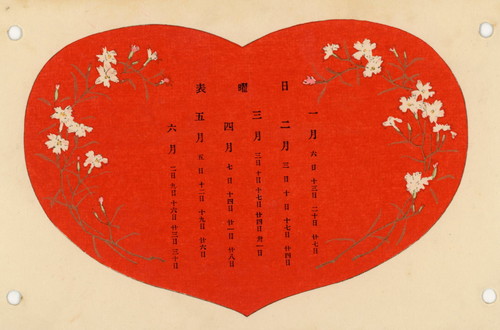 日曜表
一月 六日 十三日 二十日 廿七日
二月 三日 十日 十七日 廿四日
三月 三日 十日 十七日 廿四日 卅一日
四月 七日 十四日 廿一日 廿八日
五月 五日 十二日 十九日 廿六日
六月 二日 九日 十六日 廿三日 三十日